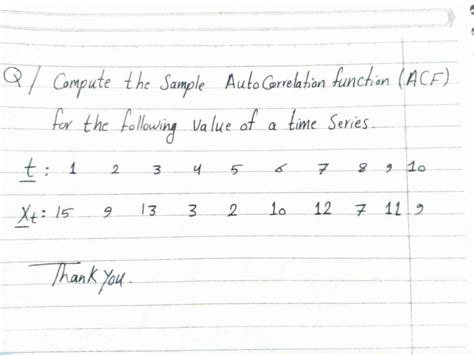 Q/ Compute the Sample AutoCorrelation function (ACF)
for the following value of a time Series.
t: 1 2 3 4 5 6 7 8 9 10
Xt: 15 9 13 3 2 10 12 7 11 9
Thank you.